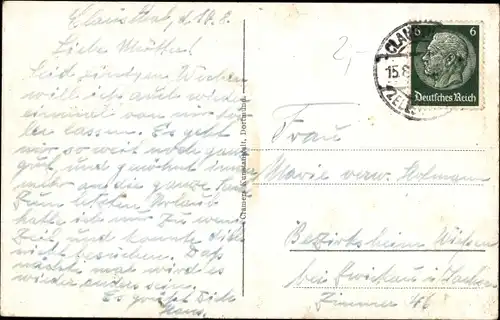 Clausthal, d. 18.8.
Liebe Martha!
Seit einigen Wochen
will ich auch wieder
einmal von mir
hören lassen. Es geht
mir so weit noch ganz
gut, und gewöhnt
mehr an die ganze
Zum letzten Urlaub
hatte ich nur zu wenig
Zeit und konnte Dich
nicht besuchen. Das
nächste mal wird es
wieder anders sein.
Es grüßt Dich
Hans.
Cramers Kunstanstalt, Dortmund
2,-
CLAUS
15.8
ZELL
6 6
Deutsches Reich
Frau
Marie verw.
Bezirksheim
bei Zwickau i. Sachsen
Zimmer 46